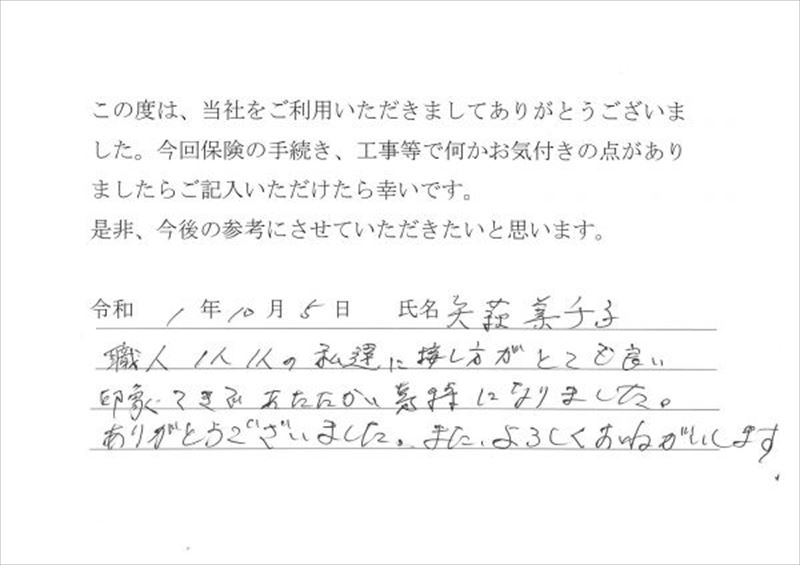 この度は、当社をご利用いただきましてありがとうございま
した。今回保険の手続き、工事等で何かお気付きの点があり
ましたらご記入いただけたら幸いです。
是非、今後の参考にさせていただきたいと思います。
令和 1 年 10 月 5 日 氏名 矢萩 美千子
職人 1人1人の私達に接し方がとても良い
印象 あたたかい気持になりました。
ありがとうございました。また、よろしくおねがいします